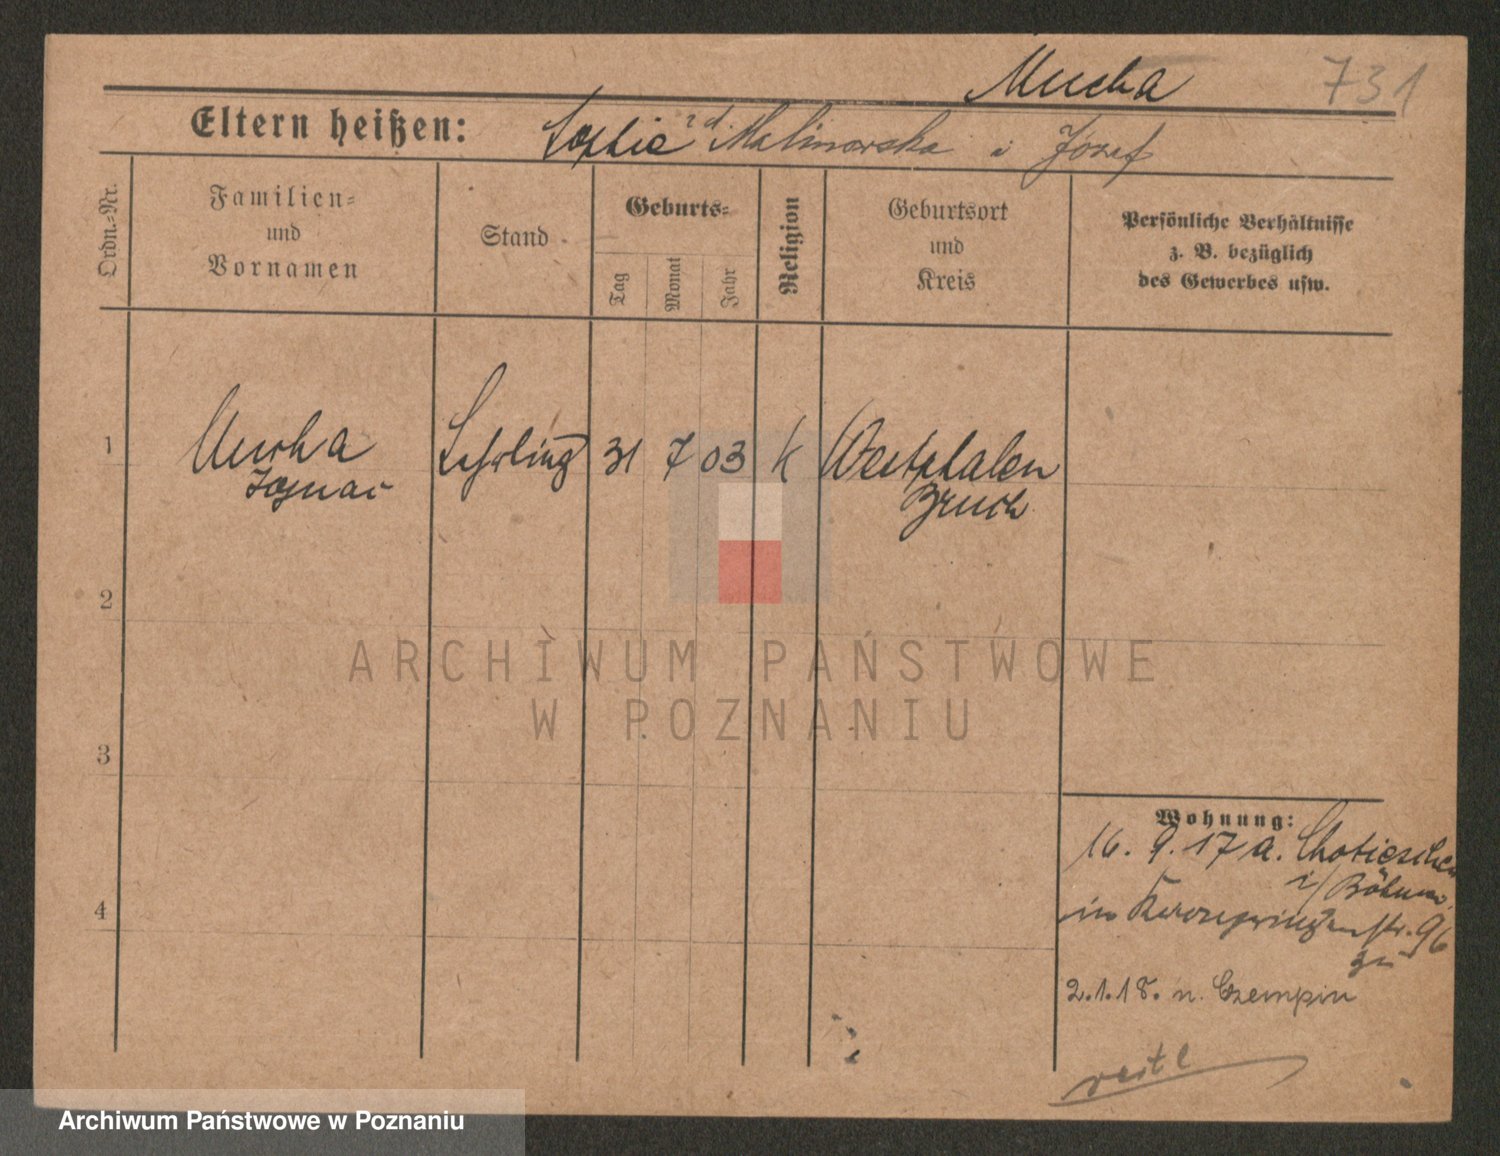 Mucha
731
Eltern heißen: Sophie Malinowska i Józef
Ordn.-Nr.
Familien-
und
Vornamen
Stand
Geburts-
Tag
Monat
Jahr
Religion
Geburtsort
und
Kreis
Persönliche Verhältnisse
z. B. bezüglich
des Gewerbes usw.
1 Mucha Lehrling 31 7 03 K Westphalen
Ignac Bruch
2
3
4
Wohnung:
16. 9. 17 a. Chotieschau
i/Böhmen
in Kronprinzenstr. 96
zu
2.1.18. n. Czempin
ARCHIWUM PAŃSTWOWE
W POZNANIU
Archiwum Państwowe w Poznaniu